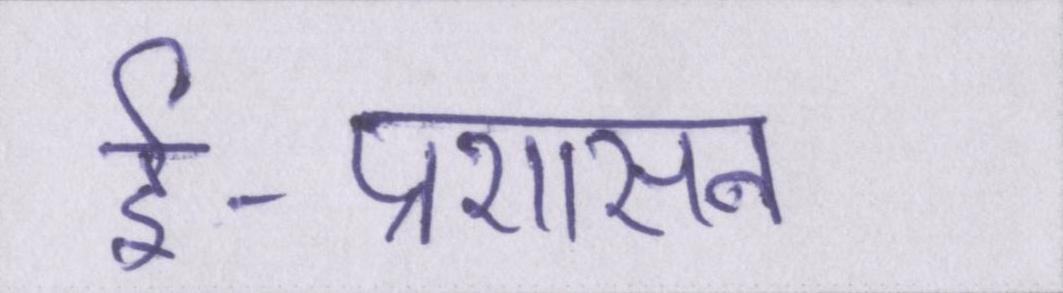 ई-प्रशासन